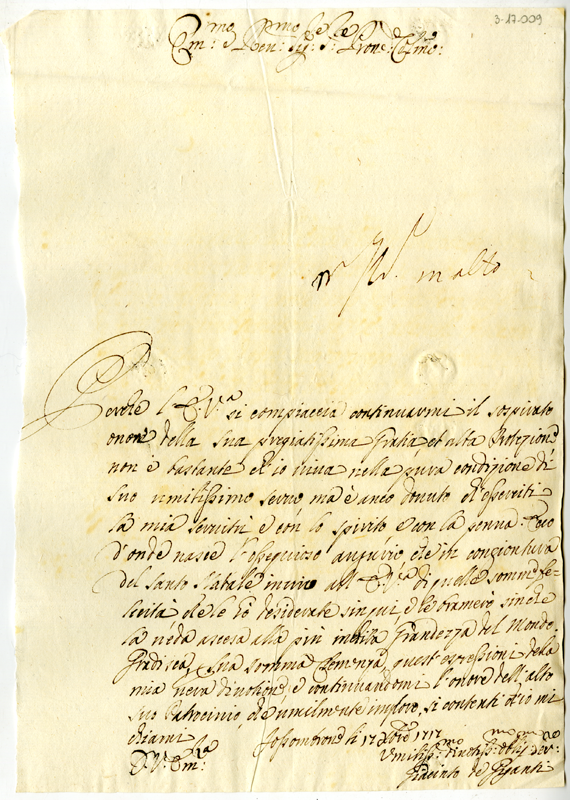 3-17-009
Em:mo e Ren: Sig:
in alto
l'E.V.a si compiaccia continuarmi il sospirato
onore della sua pregiatissima Gratia, et alta Protezione
non è bastante ch'io viva nella pura condizione di
suo umilissimo servo ma è anco douuto ch'eserciti
la mia servitù e con lo spirito e con la penna. Ecco
d'onde nasce l'ossequioso augurio che in congiontura
del Santo Natale inuio all'E.V.a di quelle somme fe-
licità che le ho desiderate sin qui e le bramerò sin che
la veda ascesa alla più Grandezza del Mondo.
Gradisca, sua somma Clemenza, queste espressioni della
mia vera diuotione e continuandomi l'onore dell'alto
suo Patrocinio, che umilmente imploro, si contenti ch'io mi
chiami li 17 Xbre 1717
D.V. Em:
Giacinto de